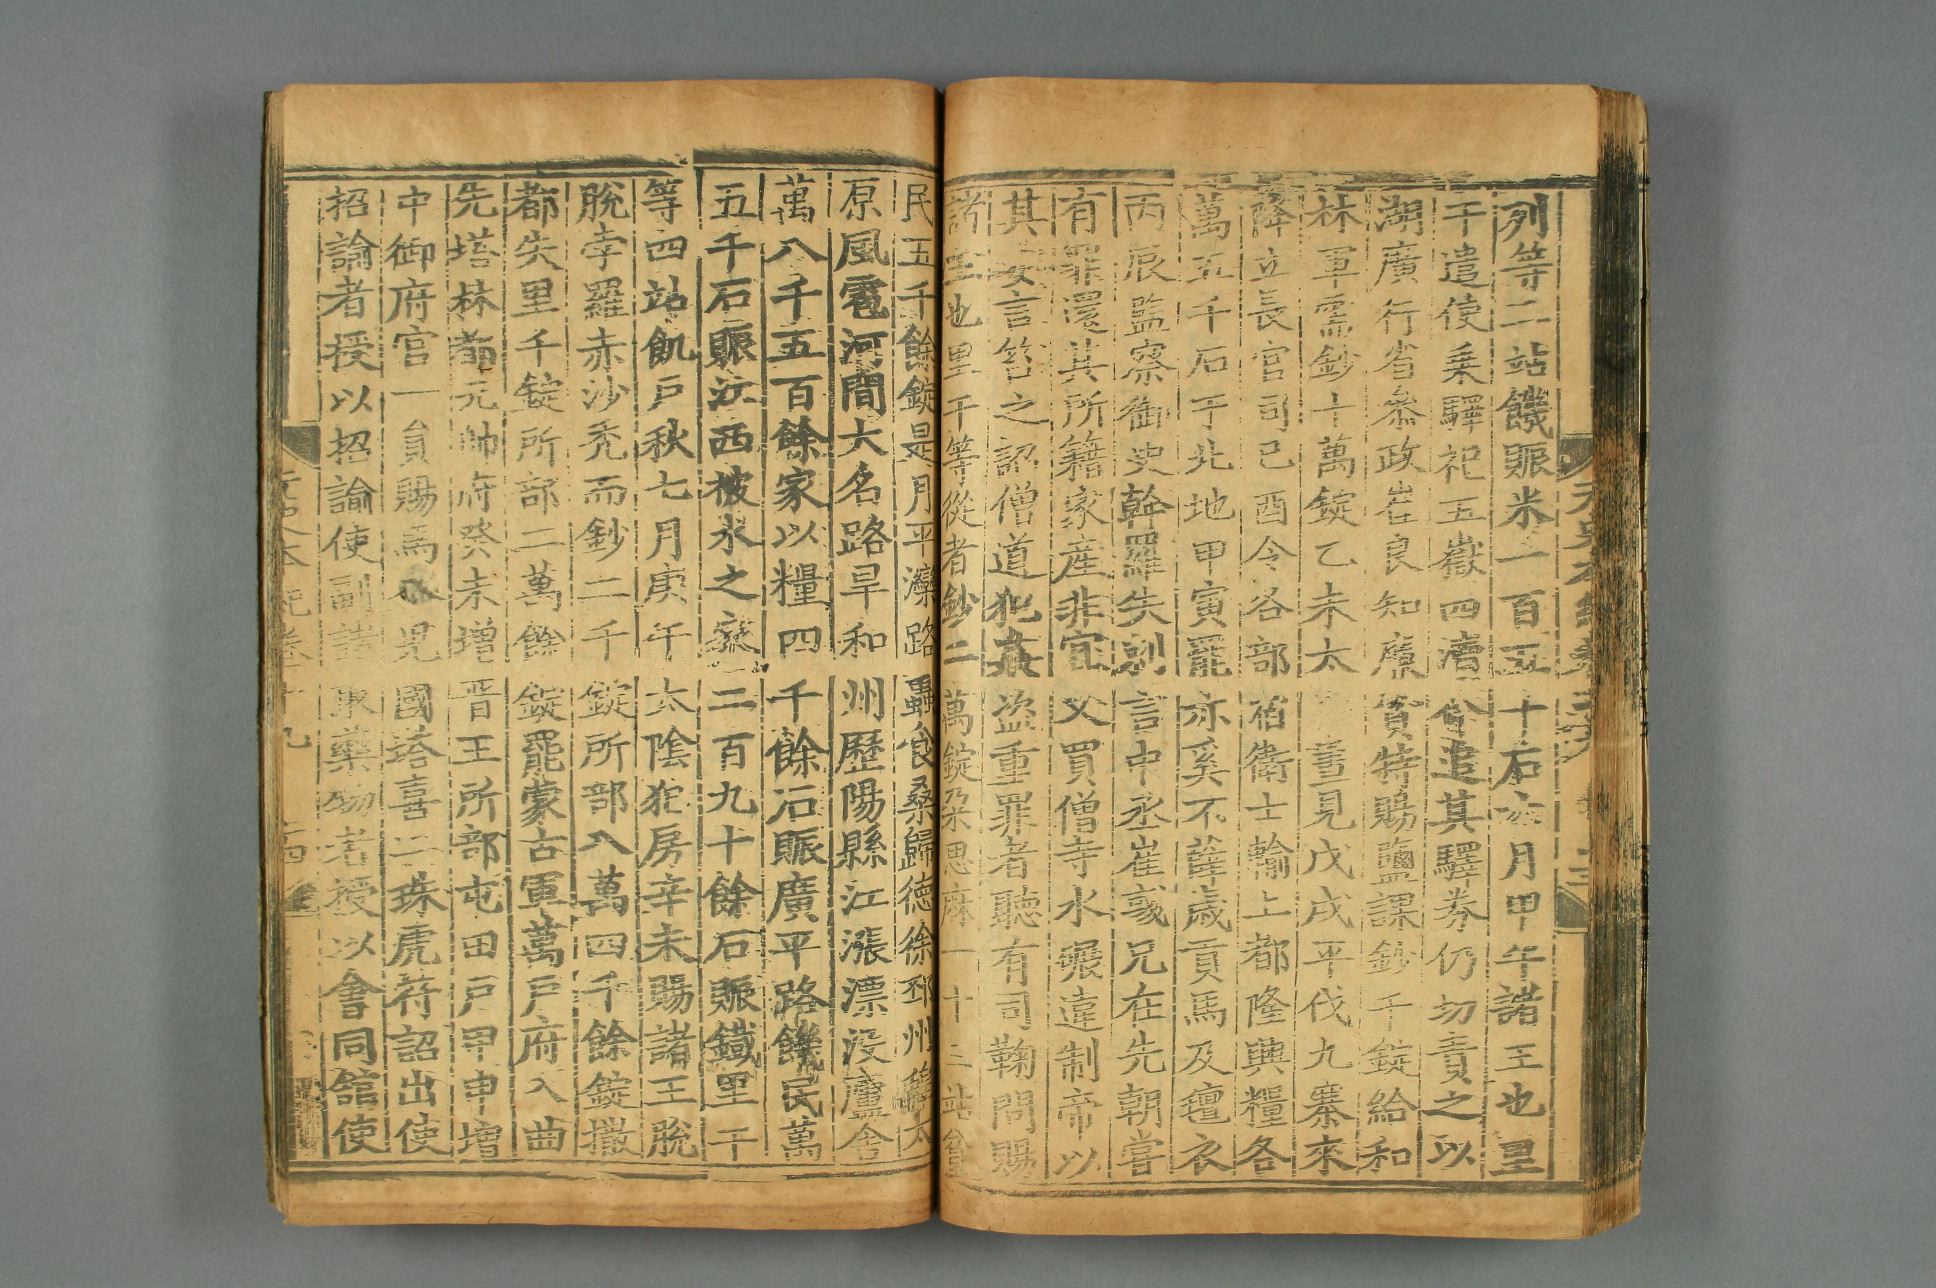 列等二站饑賑米一百五十石六月甲午諸王也里
干遣使乘驛祀五嶽四瀆命追其驛券仍切責之以
湖廣行省參政崔良知廉貧特賜鹽課鈔千錠給和
林軍需鈔十萬錠乙未太晝見戊戌平伐九寨來
降立長官司己酉令各部宿衛士輸上都隆興糧各
萬五千石于北地甲寅罷亦奚不薛歲貢馬及氊衣
丙辰監察御史斡羅失剌言中丞崔彧兄在先朝嘗
有罪還其所籍家産非宜又買僧寺水碾違制帝以
其妄言笞之詔僧道犯姦盜重罪者聽有司鞫問賜
諸王也里干等從者鈔二萬錠朶思麻一十三站
民五千餘錠是月平灤路蟲食桑歸德徐邳州
原風雹河間大名路旱和州歷陽縣江漲漂没廬舍
萬八千五百餘家以糧四千餘石賑廣平路饑民萬
五千石賑江西被水之家二百九十餘石賑鐵里干
等四站飢戶秋七月庚午太陰犯房辛未賜諸王脫
脫孛羅赤沙禿而鈔二千錠所部八萬四千餘錠撒
都失里千錠所部二萬餘錠罷蒙古軍萬戶府入曲
先塔林都元帥府癸未增晉王所部屯田戶甲申增
中御府官一員賜馬八兒國塔喜二珠虎符詔出使
招諭者授以招諭使副諸取藥物者授以會同舘使
元史本紀卷十九 二四